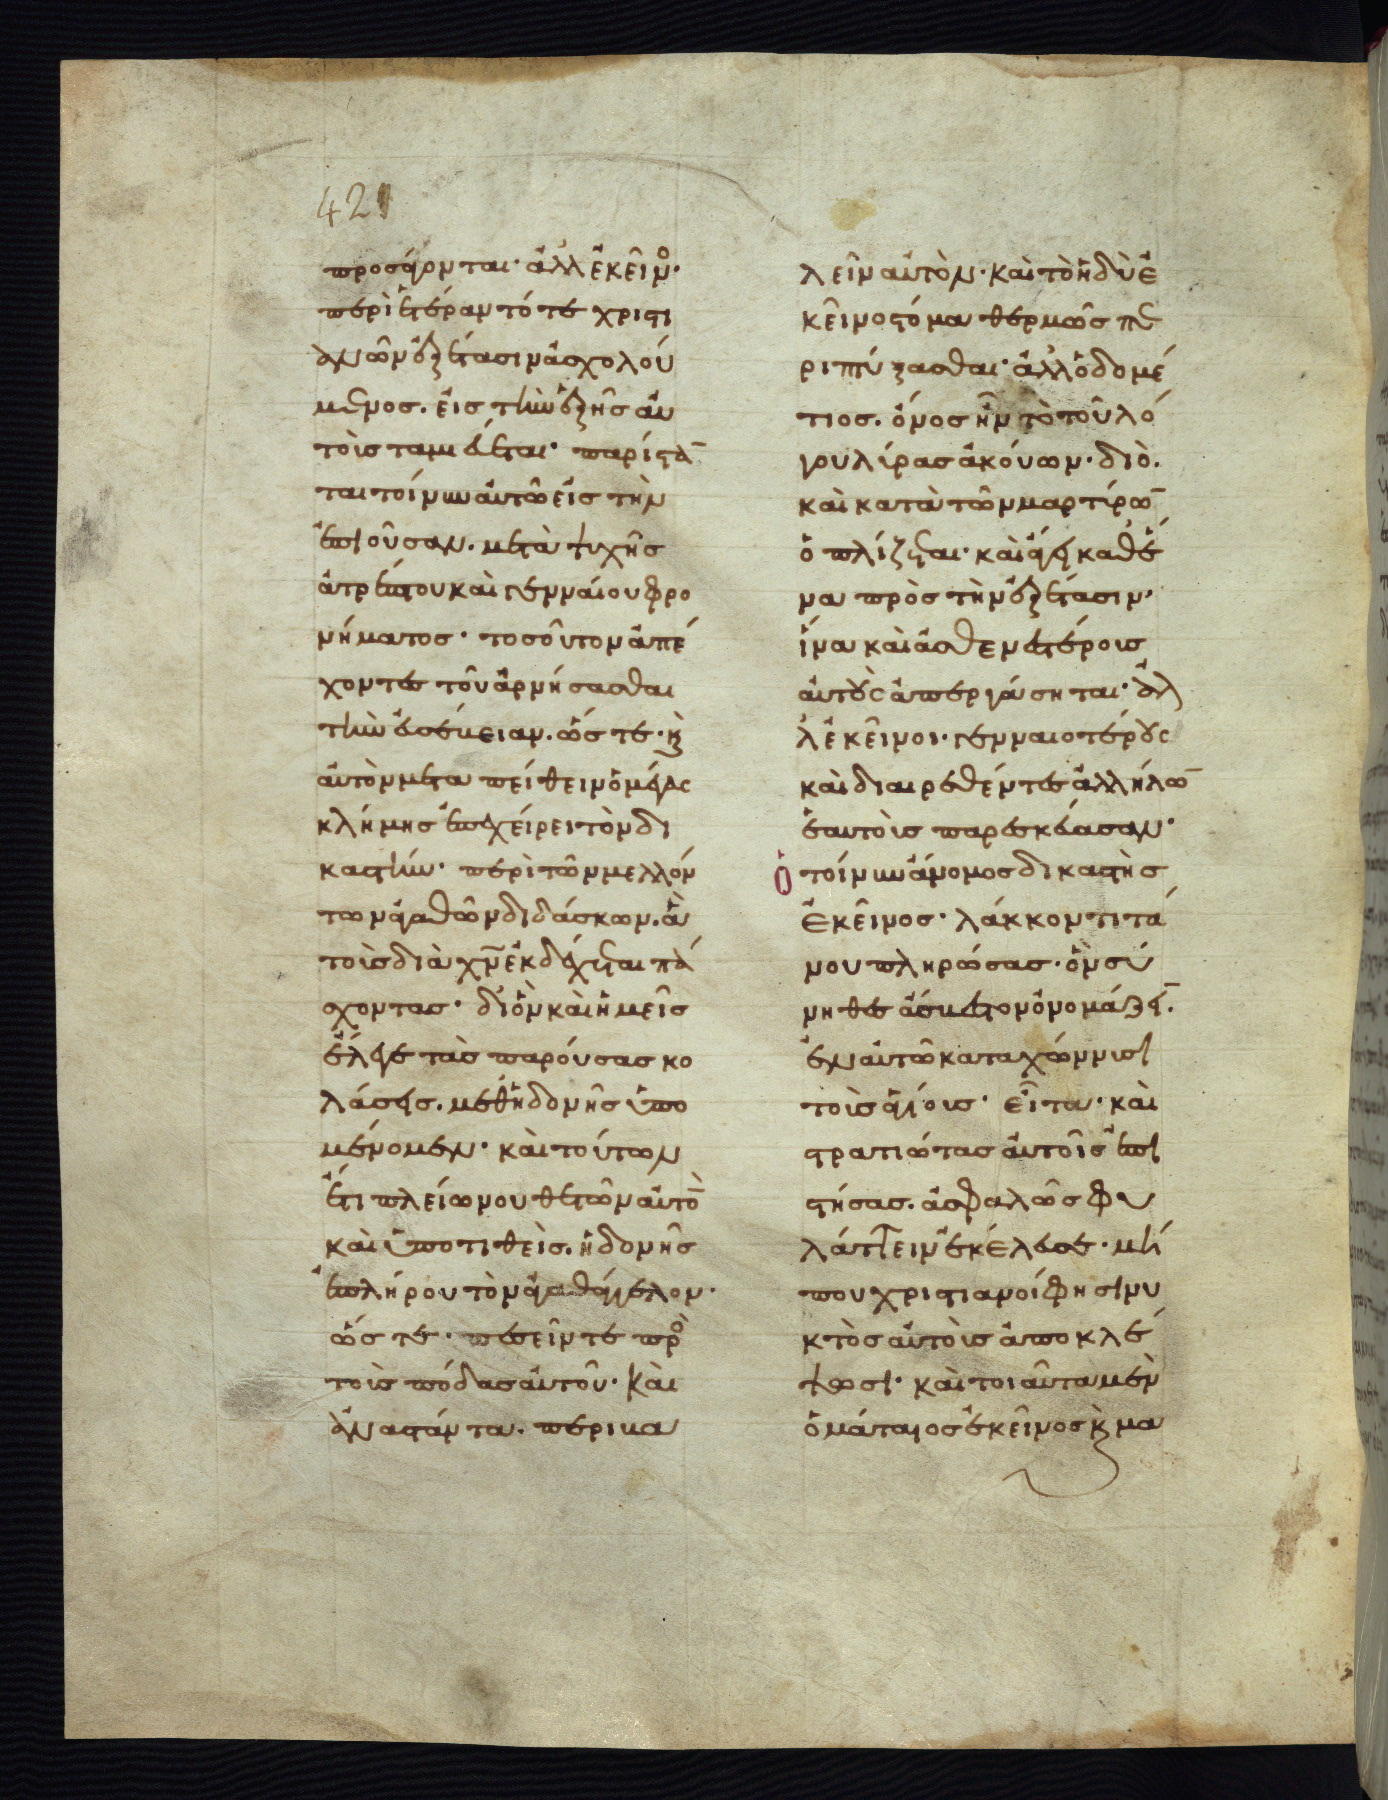 421
προσάγονται· ἀλλ' ἐκεῖνο·
περὶ ἑτέραν τότε χριστι
ανῶν ἐξέτασιν ἀσχολού
μενος. εἰς τὴν ἑξῆς αὐ
τοὺς ταμιεύεται· παρίστα
ται τοίνυν αὐτῶ εἰς τὴν
ἐπιοῦσαν. μετὰ ψυχῆς
ἀτρέπτου καὶ γενναίου φρο
νήματος· τοσοῦτον ἀπέ
χοντες τοῦ ἀρνήσασθαι
τὴν εὐσέβειαν. ὥς τε· καὶ
αὐτὸν μεταπείθειν ὁ μέγας
κλήμης ἐπεχείρει τὸν δι
καστήν· περὶ τῶν μελλόν
των ἀγαθῶν διδάσκων. ἃ
τοὺς διὰ χν ἐκδέχεται πά
σχοντας· δι' ὃν καὶ ἡμεῖς
ἔλεγε τὰς παρούσας κο
λάσεις. μεθ' ἡδονῆς ὑπο
μένομεν· καὶ τούτων
ἔτι πλείω νουθετῶν αὐτὸ
καὶ ὑποτιθεὶς. ἡδονῆς
ἐπλήρου τὸν ἀγαθάγγελον·
ὥς τε· πεσεῖν τε προ
τοὺς πόδας αὐτοῦ· καὶ
ἀναστάντα. περιβα
λεῖν αὐτὸν· καὶ τὸ ἡδὺ ἐ
κεῖνο στόμα θερμῶς πε
ριπτύξασθαι· ἀλλ' ὁ δομέ
τιος. ὄνος ἦν τὸ τοῦ λό
γου λύρας ἀκούων· διὸ.
καὶ κατὰ τῶν μαρτύρω
ὁπλίζεται· καὶ ἄγει καθ' ἕ
να πρὸς τὴν ἐξέτασιν·
ἵνα καὶ ἀσθενετέροις
αὐτοὺς ἀπεργάσηται· ἀλ
λ' ἐκεῖνοι. γενναιοτέρους
καὶ διαιρεθέντες ἀλλήλω
ἑαυτοὺς παρεσκεύασαν·
ὁ τοίνυν ἄνομος δικαστὴς
ἐκεῖνος· λάκκον τιτά
νου πληρώσας· ὃν σύ
νηθες ἄσβεστον ὀνομάζειν.
ἐν αὐτῶ καταχώννυσι
τοὺς ἁγίους· εἶτα· καὶ
στρατιώτας αὐτοῖς ἐπι
στήσας. ἀσφαλῶς φυ
λάττειν ἐκέλευσε· μή
που χριστιανοὶ φησι νυ
κτὸς αὐτοὺς ἀποκλέ
ψωσι· καὶ τοιαῦτα μὲν
ὁ μάταιος ἐκεῖνος καὶ μα